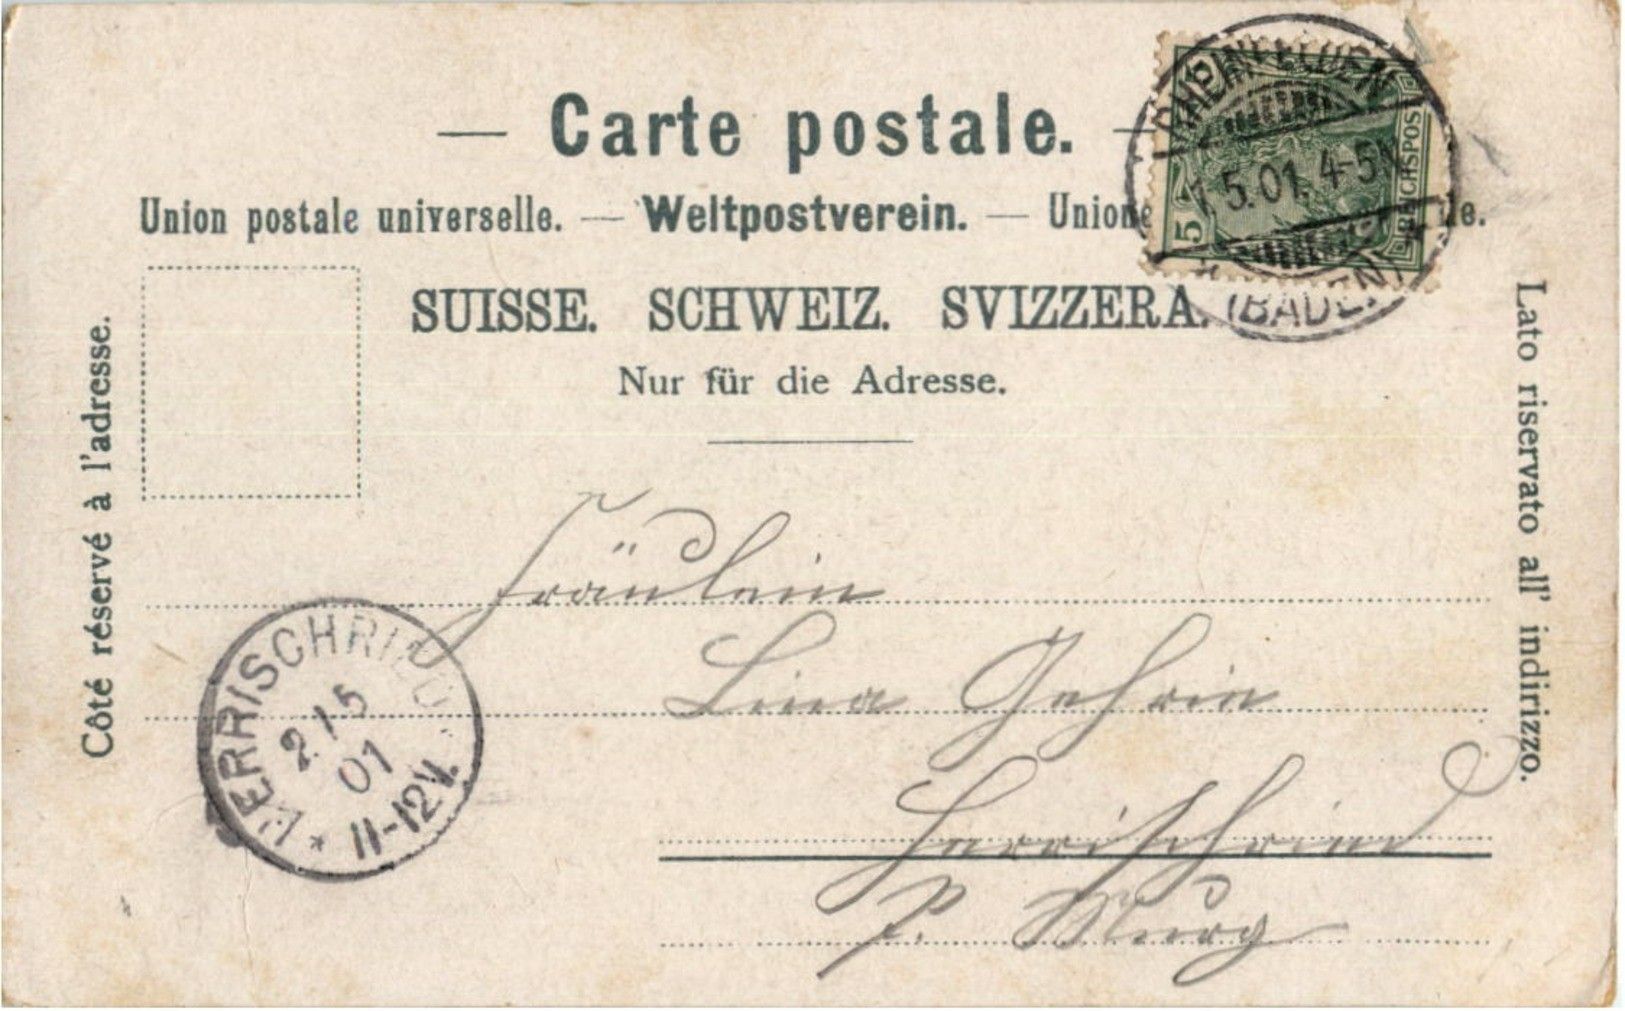 Carte postale.
Union postale universelle. — Weltpostverein. — Unione
SUISSE. SCHWEIZ. SVIZZERA.
Nur für die Adresse.
Côté réservé à l'adresse.
Lato riservato all' indirizzo.
5 REICHSPOST
RHEINFELDEN
1.5.01. 4-5N
(BADEN)
HERRISCHRIED
2/5
01
11-12V.
Fräulein
Lina Gehrin
Herrischried
P. Murg